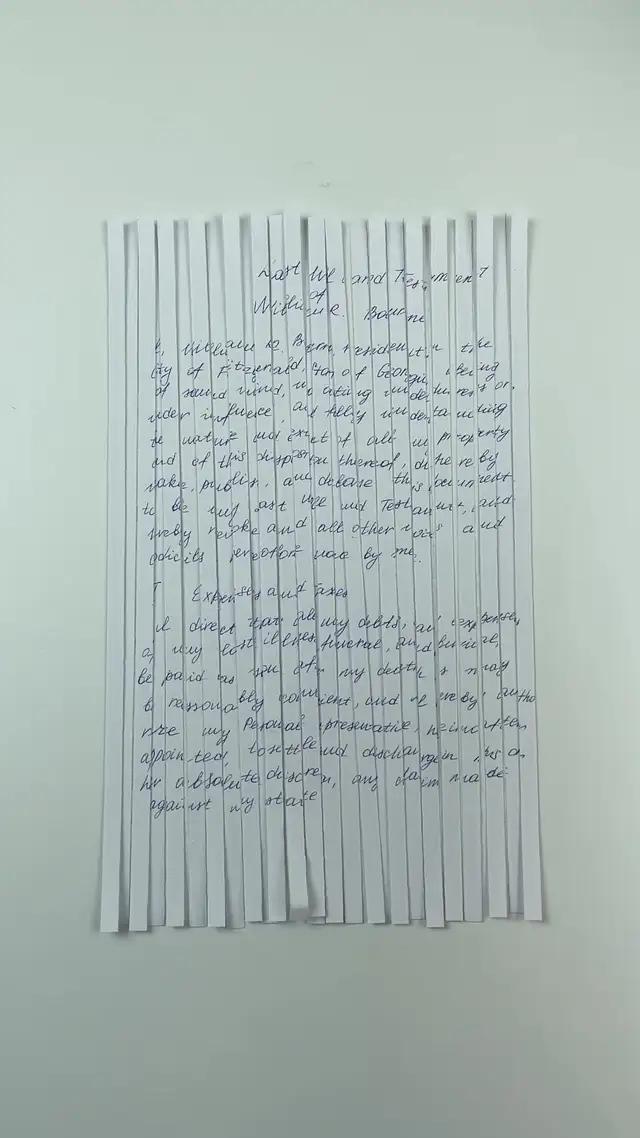 Last Will and Testament
of
R. Bourne
I, R. resident in the
city of Fitzgerald, of Georgia, being
of sound mind, not acting under duress or
under influence, and fully understanding
the nature and extent of all my property
and of this disposition thereof, do hereby
make, publish, and declare this document
to be my last will and Testament, and
hereby revoke and all other wills and
codicils heretofore made by me.
I Expenses and Taxes
I direct that all my debts, and expenses
of my last illness, funeral, and burial,
be paid as soon after my death as may
be reasonably convenient, and I hereby autho
rize my Personal representative, hereinafter
appointed, to settle and discharge in his or
her absolute discretion, any claim made
against my estate